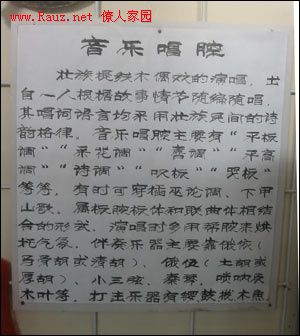 www.Rauz.net 僚人家园
音乐唱腔
壮族提线木偶戏的演唱，士
自一人根据故事情节随编随唱，
其唱词语言均采用壮族民间的诗
韵格律。音乐唱腔主要有“平板
调”“采花调”“喜调”“平高
调”“诗调”“叹板”“哭板”
等等，有时可穿插巫论调、下甲
山歌。属板腔体和联曲体相结
合的形式，演唱时多用帮腔来烘
托气氛。伴奏乐器主要靠俄依（
马骨胡或清胡）、俄伍（土胡或
厚胡）、小三弦、秦琴，唢呐及
木叶等，打主乐器有锣鼓拔木鱼